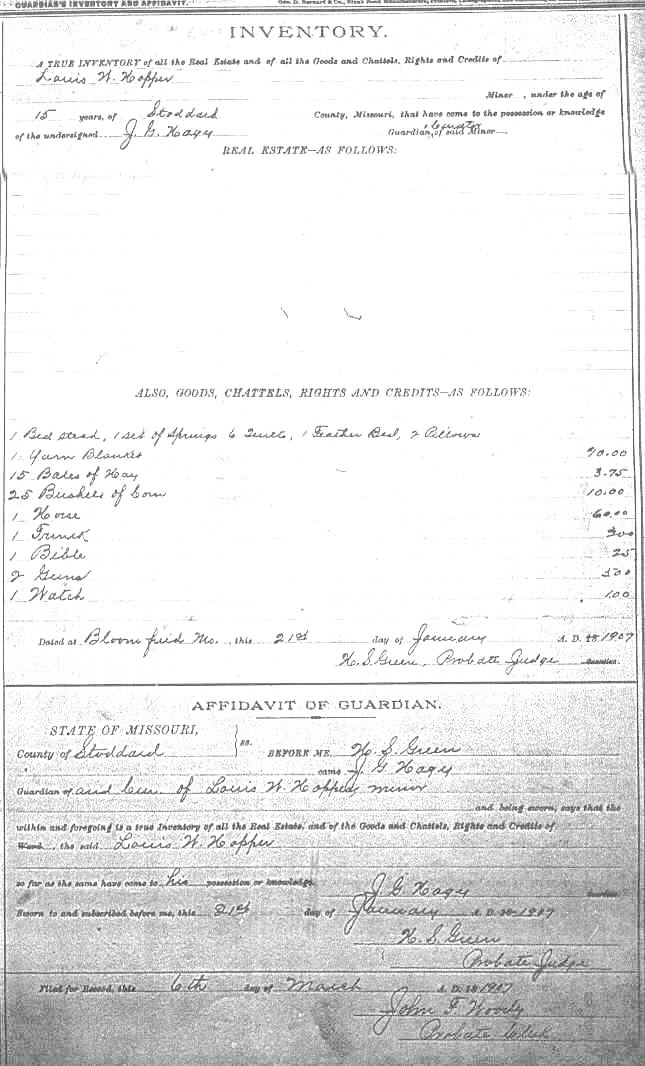 GUARDIAN'S INVENTORY AND AFFIDAVIT.
INVENTORY.
A TRUE INVENTORY of all the Real Estate and of all the Goods and Chattels, Rights and Credits of
Louis W. Hopper
Minor , under the age of
15 years, of Stoddard County, Missouri, that have come to the possession or knowledge
of the undersigned J. G. Hagy Guardian, & Curator of said Minor
REAL ESTATE—AS FOLLOWS:
ALSO, GOODS, CHATTELS, RIGHTS AND CREDITS—AS FOLLOWS:
1 Bed stead, 1 set of Springs 6 Quilts, 1 Feather Bed, 2 Pillows
1 Yarn Blanket 20.00
15 Bales of Hay 3.75
25 Bushels of Corn 10.00
1 Horse 60.00
1 Trunk 300
1 Bible 25
2 Guns
1 Watch 1.00
Dated at Bloomfield Mo. , this 21st day of January A. D. 18 1907
H. S. Green, Probate Judge Guardian.
AFFIDAVIT OF GUARDIAN.
STATE OF MISSOURI,
County of Stoddard ss. BEFORE ME, H. S. Green
came J. G. Hagy
Guardian of and Cur. of Louis W. Hopper minor
and being sworn, says that the
within and foregoing is a true Inventory of all the Real Estate, and of the Goods and Chattels, Rights and Credits of
Ward , the said Louis W. Hopper
so far as the same have come to his possession or knowledge. J. G. Hagy Guardian
Sworn to and subscribed before me, this 21st day of January A. D. 18 1907
H. S. Green
Probate Judge
Filed for Record, this 6th day of March A. D. 18 1907
John F. Woody
Probate Clerk